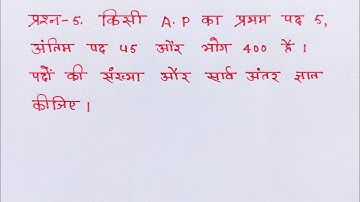 प्रश्न-5. किसी A.P का प्रथम पद 5,
अंतिम पद 45 और योग 400 है।
पदों की संख्या और सार्व अंतर ज्ञात
कीजिए।